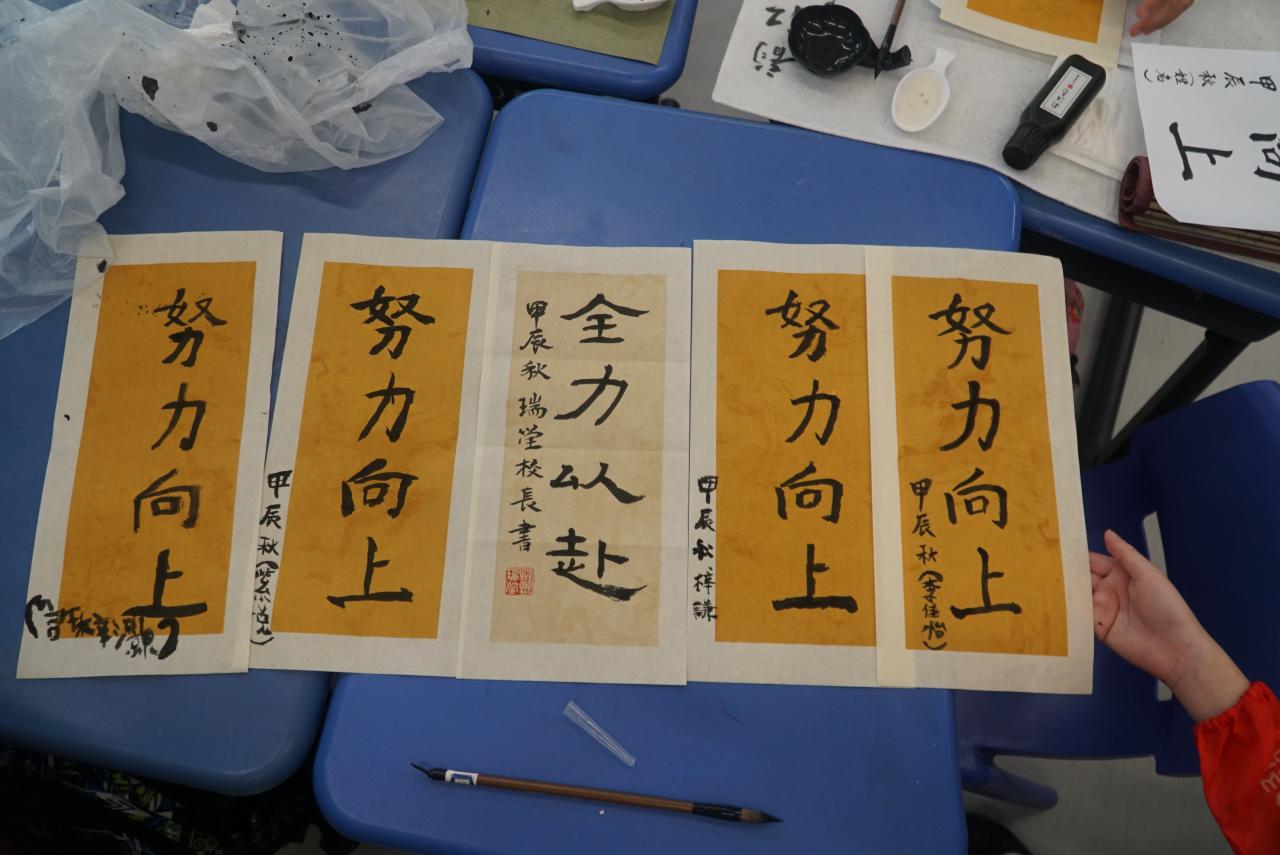 努力向上
努力向上
甲辰秋(紫
全力以赴
甲辰秋 瑞 校長書
努力向上
甲辰秋 梓謙
努力向上
甲辰秋(李佳怡)
向上
甲辰秋